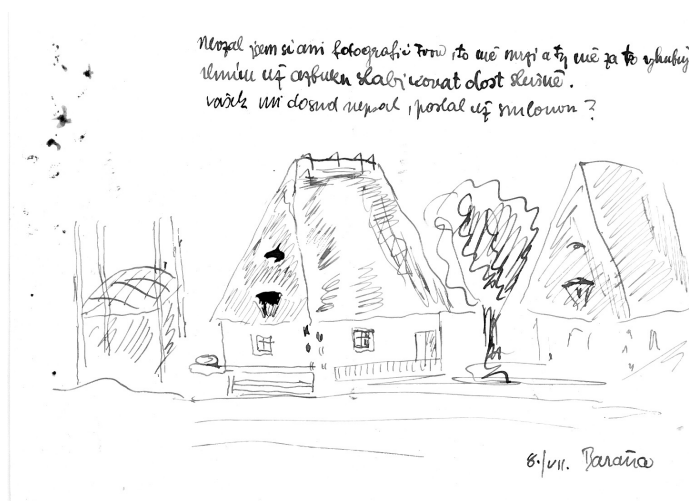 nevzal jsem si ani fotografii tvou, to mě mrzí a ty mě za to vyhubuj
umím už azbuku slabikovat dost slušně.
Vašek mi dosud nepsal, poslal už smlouvu?
8./VII. Baraňa